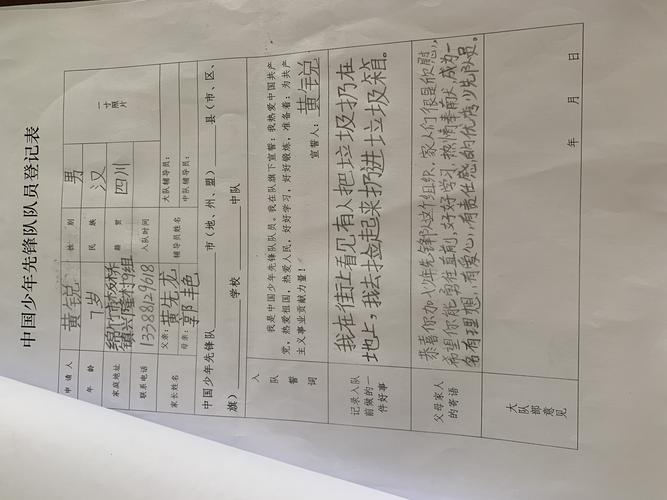 中国少年先锋队队员登记表
申请人 黄锐 性别 男 一寸照片
年龄 7岁 民族 汉
家庭地址 绵竹市孝德镇兴隆村9组 籍贯 四川
联系电话 13388129618 入队时间 大队辅导员：
家长姓名 父亲：黄先龙 辅导员姓名 中队辅导员：
母亲：郭艳
中国少年先锋队 市（地、州、盟） 县（市、区、
旗） 学校 中队
入队誓词 我是中国少年先锋队队员。我在队旗下宣誓：我热爱中国共产
党，热爱祖国，热爱人民，好好学习，好好锻炼，准备着：为共产
主义事业贡献力量！
宣誓人：黄锐
记录入队前做的一件好事 我在街上看见有人把垃圾扔在
地上，我去捡起来扔进垃圾箱。
父母家人的寄语 恭喜你加少年先锋队这个组织，家人们很是欣慰，
希望你能勇往直前，好好学习，热情奉献，成为一
名有理想，有爱心，有责任感的优秀少先队员。
大队部意见
年 月 日